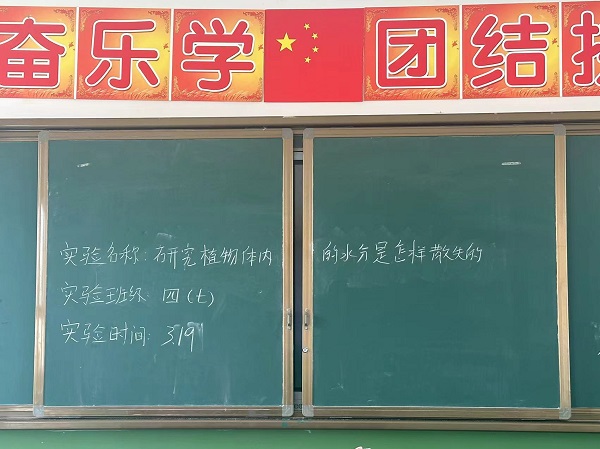 奋乐学 团结
实验名称:研究植物体内的水分是怎样散失的
实验班级 四(七)
实验时间:3.19